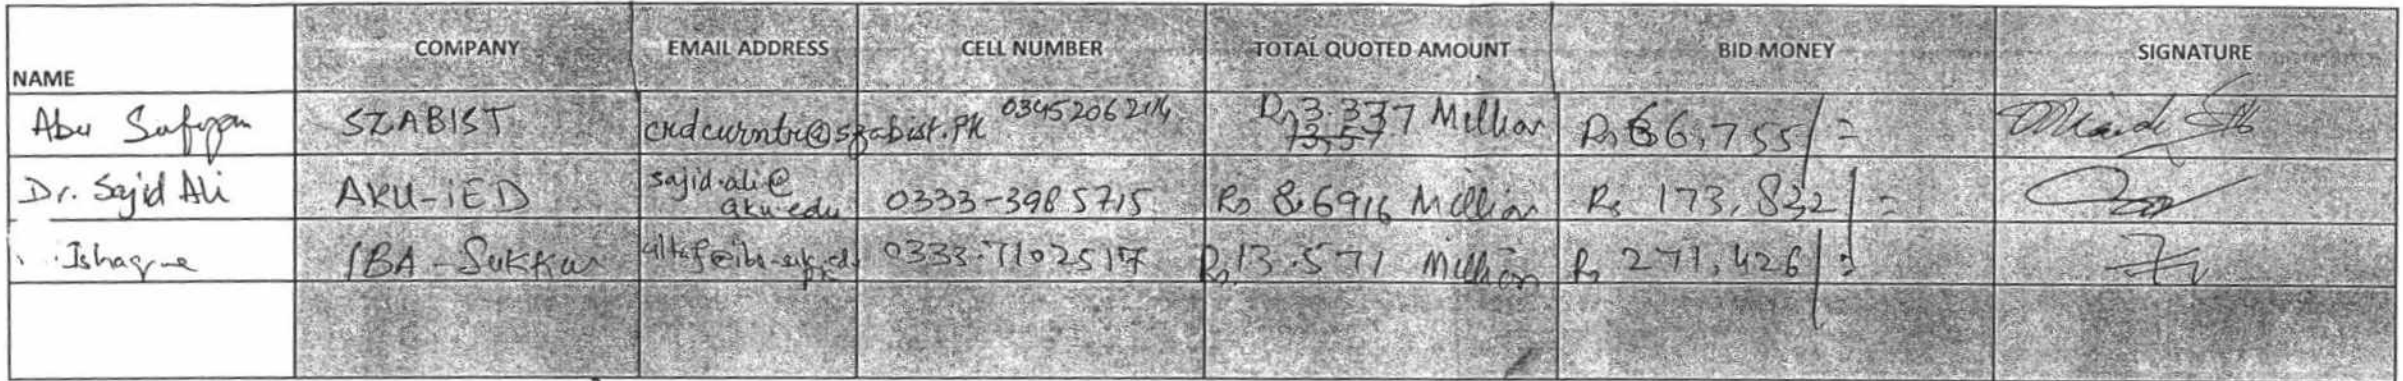 NAME COMPANY EMAIL ADDRESS CELL NUMBER TOTAL QUOTED AMOUNT BID MONEY SIGNATURE
Abu Sufyan SZABIST @szabist.PK 03452062114 Rs 3.337 Million Rs 66,755/=
13,57
Dr. Sajid Ali AKU-IED sajid.ali@ 0333-3985715 Rs 8.6916 Million Rs 173,832/=
aku.edu
Ishaque IBA-Sukkur 0333-7102517 Rs 13.571 Million Rs 271,426/=